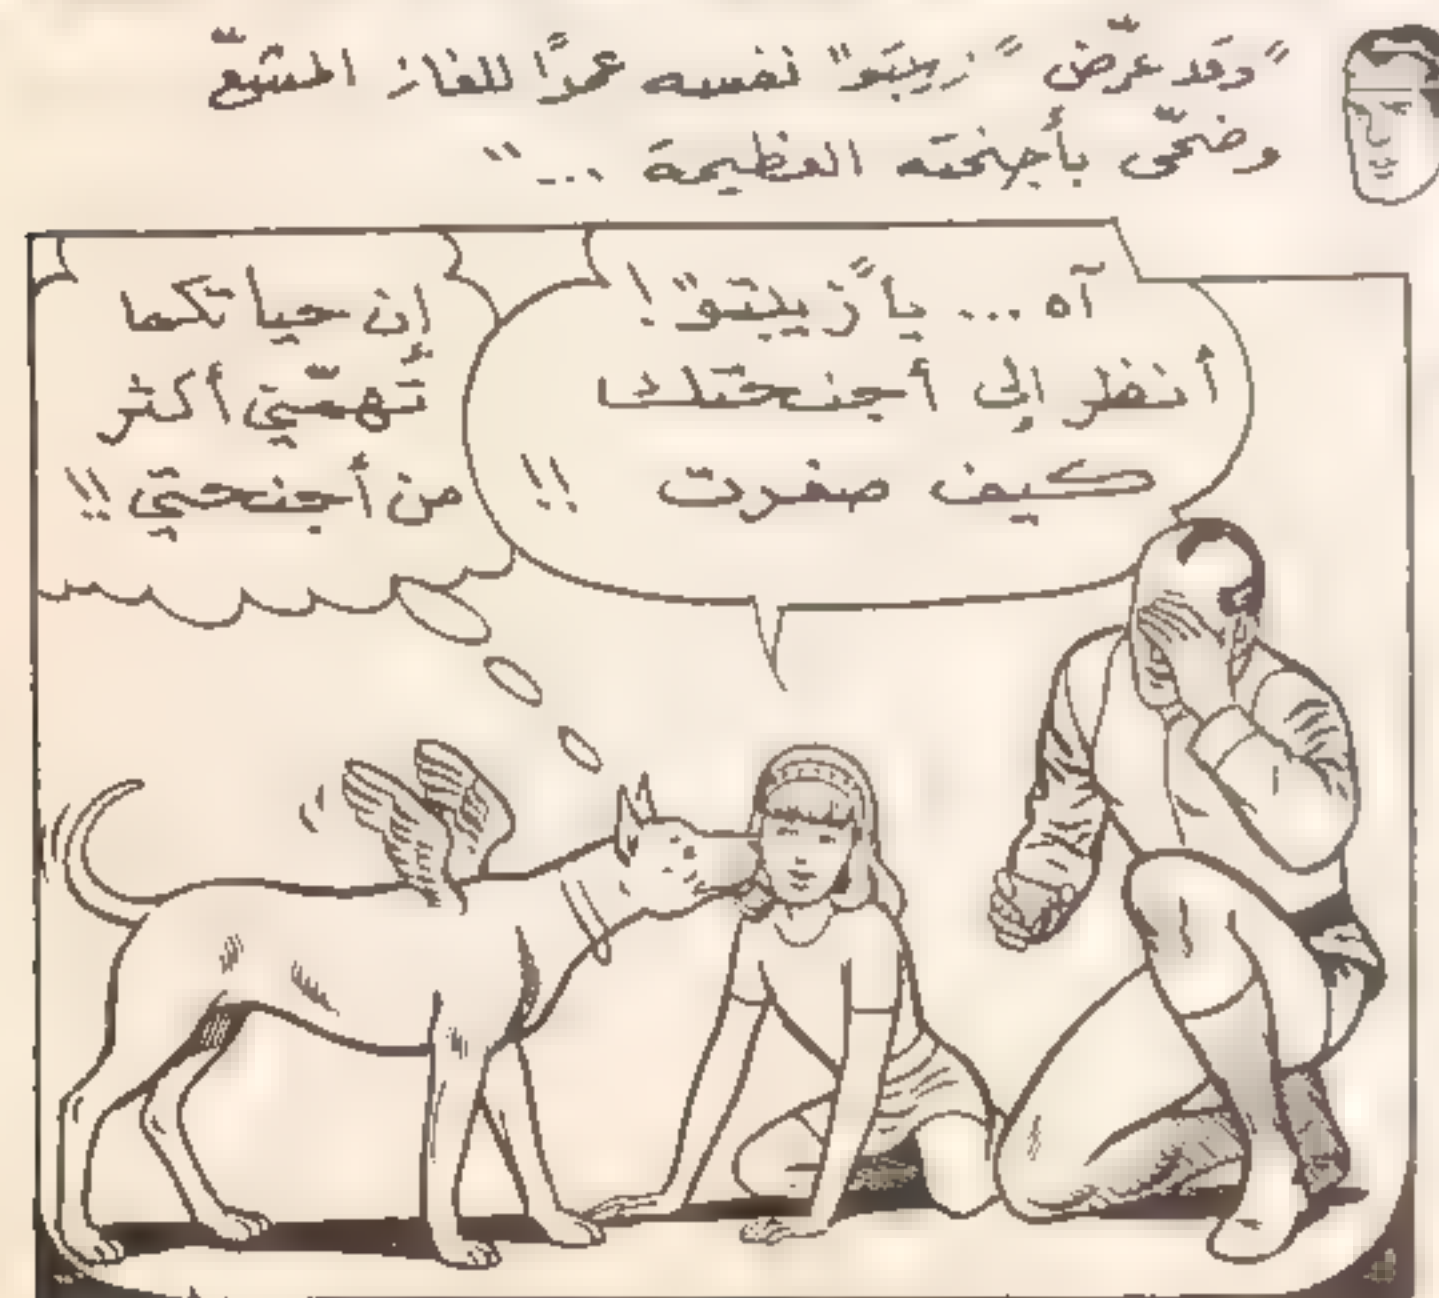 "وقد عرّض "زيبتو" نفسه عمدًا للغاز المشعّ
وضحّى بأجنحته العظيمة ..."
آه ... يا "زيبتو"!
أنظر إلى أجنحتك
كيف صغرت !!
إن حياتكما
تُهمّني أكثر
من أجنحتي !!